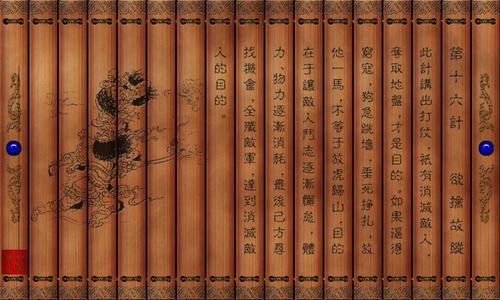 第十六計　欲擒故縱
此計講出打仗，祇有消滅敵人，
奪取地盤，才是目的。如果逼得
窮寇，狗急跳墻，垂死掙扎，放
他一馬，不等于放虎歸山，目的
在于讓敵人鬥志逐漸懈怠，體
力、物力逐漸消耗，最後己方尋
找機會，全殲敵軍，達到消滅敵
人的目的。